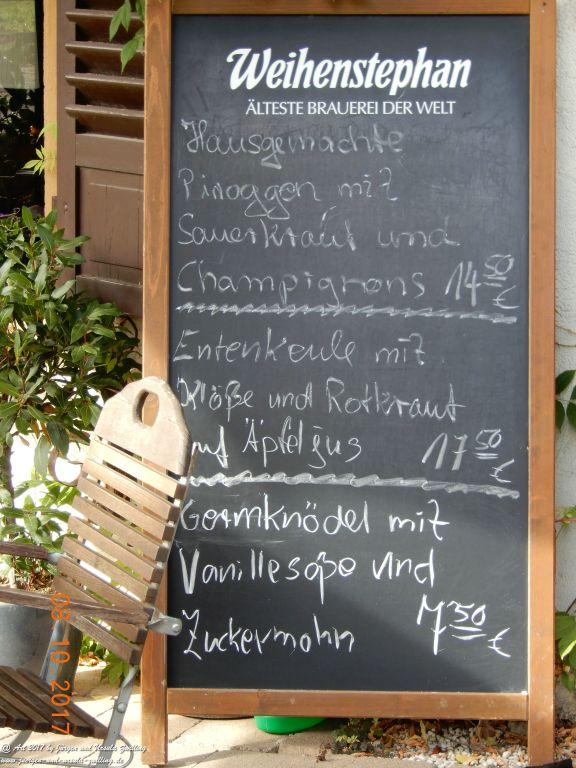 Weihenstephan
ÄLTESTE BRAUEREI DER WELT
Hausgemachte
Piroggen mit
Sauerkraut und
Champignons 14 50 €
Entenkeule mit
Klöße und Rotkraut
auf Äpfeljus 17 50 €
Germknödel mit
Vanillesoße und
Zuckermohn 7 50 €
08 10 2017
© Art 2017 by Jürgen und Ursula Zwilling
www.juergen-und-ursula-zwilling.de